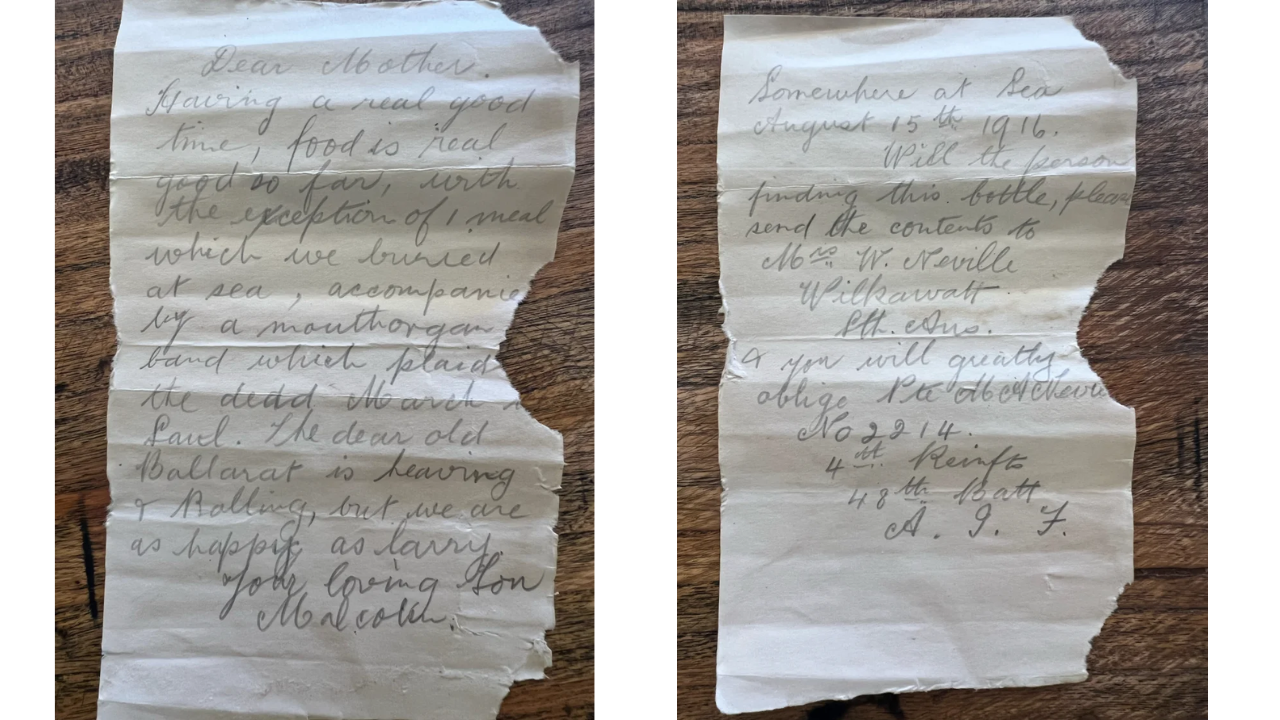 Dear Mother.
Having a real good
time, food is real
good so far, with
the exception of 1 meal
which we buried
at sea, accompanie
by a mouthorgan
band which plaid
the dead March
Saul. The dear old
Ballarat is heaving
& Rolling, but we are
as happy as larry.
Your loving Son
Malcolm.
Somewhere at Sea
August 15th 1916.
Will the person
finding this bottle, pleas
send the contents to
Mrs W. Neville
Wilkawatt
Sth. Aus.
& you will greatly
oblige Pte M A Nevi
No 2214.
4th Reinfts
48th Batt
A. I. F.